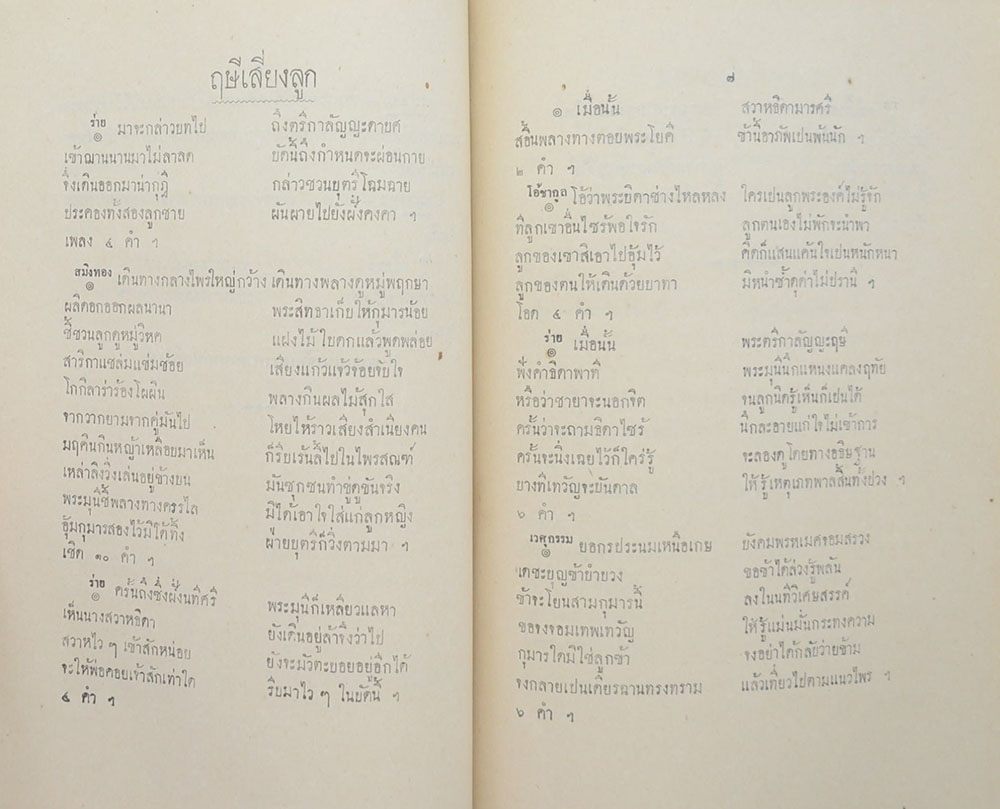 ฤษีเสี่ยงลูก
ร่าย
๏ มาจะกล่าวบทไป ถึงตรีกาลัญญะดาบศ
เข้าฌานนานมาไม่ลาลด บัดนี้ถึงกำหนดจะผ่อนกาย
จึงเดินออกมาน่ากุฎี กล่าวชวนบุตรีโฉมฉาย
ประคองทั้งสองลูกชาย ผันผายไปยังฝั่งคงคา ฯ
เพลง ๔ คำ ฯ
สมิงทอง
๏ เดินทางกลางไพรใหญ่กว้าง เดินทางพลางดูหมู่พฤกษา
ผลิดอกออกผลนานา พระสิทธาเก็บให้กุมารน้อย
ชี้ชวนลูกดูหมู่วิหค แฝงไม้ใบดกแล้วพูดพล่อย
สาริกาแซ่ลมแซ่มช้อย เสียงแก้วแจ้วจ้อยจับใจ
โกกิลาร่าร้องโผผิน พลางกินผลไม้สุกใส
จากวากยามจากคู่มันไป โหยไห้ราวเสียงสำเนียงคน
มฤคินกินหญ้าเหลือบมาเห็น ก็รีบเร้นลี้ไปในไพรสณฑ์
เหล่าลิงวิ่งเล่นอยู่ข้างบน มันซุกซนทำขู่ดูขันจริง
พระมุนีชี้พลางทางครรไล มิได้เอาใจใส่แก่ลูกหญิง
อุ้มกุมารสองไว้มิได้ทิ้ง ฝ่ายบุตรีก็วิ่งตามมา ฯ
เชิด ๑๐ คำ ฯ
ร่าย
๏ ครั้นถึงซึ่งฝั่งนทีศรี พระมุนีก็เหลียวแลหา
เห็นนางสวาหธิดา ยังเดินอยู่ล้าจึงว่าไป
สวาหไว ๆ เข้าสักหน่อย ยังจะมัวตะบอยอยู่อีกได้
จะให้พ่อคอยเจ้าสักเท่าใด รีบมาไว ๆ ในบัดนี้ ฯ
๔ คำ ฯ
๗
๏ เมื่อนั้น สวาหธิดามารศรี
สอื้นพลางทางตอบพระโยคี ข้านี้อาภัพเป็นพ้นนัก ฯ
๒ คำ ฯ
โอ้ชากูล
๏ โอ้ว่าพระบิดาช่างไหลหลง ใครเป็นลูกพระองค์ไม่รู้จัก
ที่ลูกเขาอื่นไซร้พอใจรัก ลูกตนเองไม่พักจะนำพา
ลูกของเขาสิเอาไปอุ้มไว้ คิดก็แสนแค้นใจเป็นหนักหนา
ลูกของตนให้เดินด้วยบาทา มิหนำซ้ำดุด่าไม่ปรานี ฯ
โอด ๔ คำ ฯ
ร่าย
๏ เมื่อนั้น พระตรีกาลัญญะฤษี
ฟังคำธิดาพาที พระมุนีนึกแหนงแคลงฤทัย
หรือว่าชายาจะนอกจิต จนลูกนิดรู้เห็นก็เป็นได้
ครั้นว่าจะถามธิดาไซร้ นึกละอายแก่ใจไม่เข้าการ
ครั้นจะนิ่งเฉยไว้ก็ใคร่รู้ จะลองดูโดยทางอธิษฐาน
บางทีเทวัญจะบันดาล ให้รู้เหตุเภทพาลสิ้นทั้งปวง ฯ
๖ คำ ฯ
เวศุกรรม
๏ ยอกรประนมเหนือเกษ บังคมพรหมเมศจอมสรวง
เดชะบุญข้าบำบวง ขอข้าได้ล่วงรู้พลัน
ข้าจะโยนสามกุมารนี้ ลงในนทีวิเศษสรรค์
ขอจงจอมเทพเทวัญ ให้รู้แม่นมั่นกระทงความ
กุมารใดมิใช่ลูกข้า จงอย่าได้กลับว่ายข้าม
จงกลายเป็นเดียรฉานทรงทราม แล้วเที่ยวไปตามแนวไพร ฯ
๖ คำ ฯ